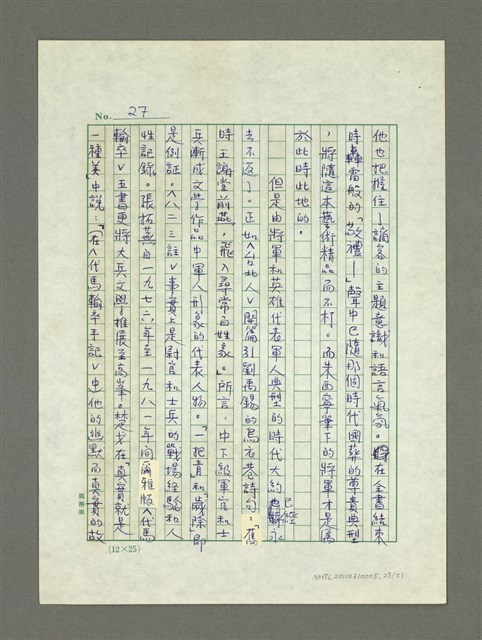 No. 27
他也把握住了謫客的主題意識和語言氣氛。在全書結束
時轟雷般的「敬禮—」聲中已隨那個時代國葬的尊貴典型
，將隨這本藝術精品而不朽。而朱西寧筆下的將軍才是屬
於此時此地的。
但是由將軍和英雄代表軍人典型的時代大約已經永
去不返了。正如〈台北人〉開篇引劉禹錫的烏衣巷詩句：「舊
時王謝堂前燕，飛入尋常百姓家。」所言，中下級軍官和士
兵漸成文學作品中軍人形象的代表人物。「一把青」和「歲除」即
是例証。〈八二三註〉事實上是尉官和士兵的戰場経驗和人
性記録。張拓蕪自一九七六年至一九八一年间爾雅版〈代馬
輸卒〉五書更將大兵文學推展至高峯。楚戈在「真實就是
一種美」中說：「在〈代馬輸卒手記〉中他的幽默而真實的故
(12×25)
NMTL20110310005, 27/51